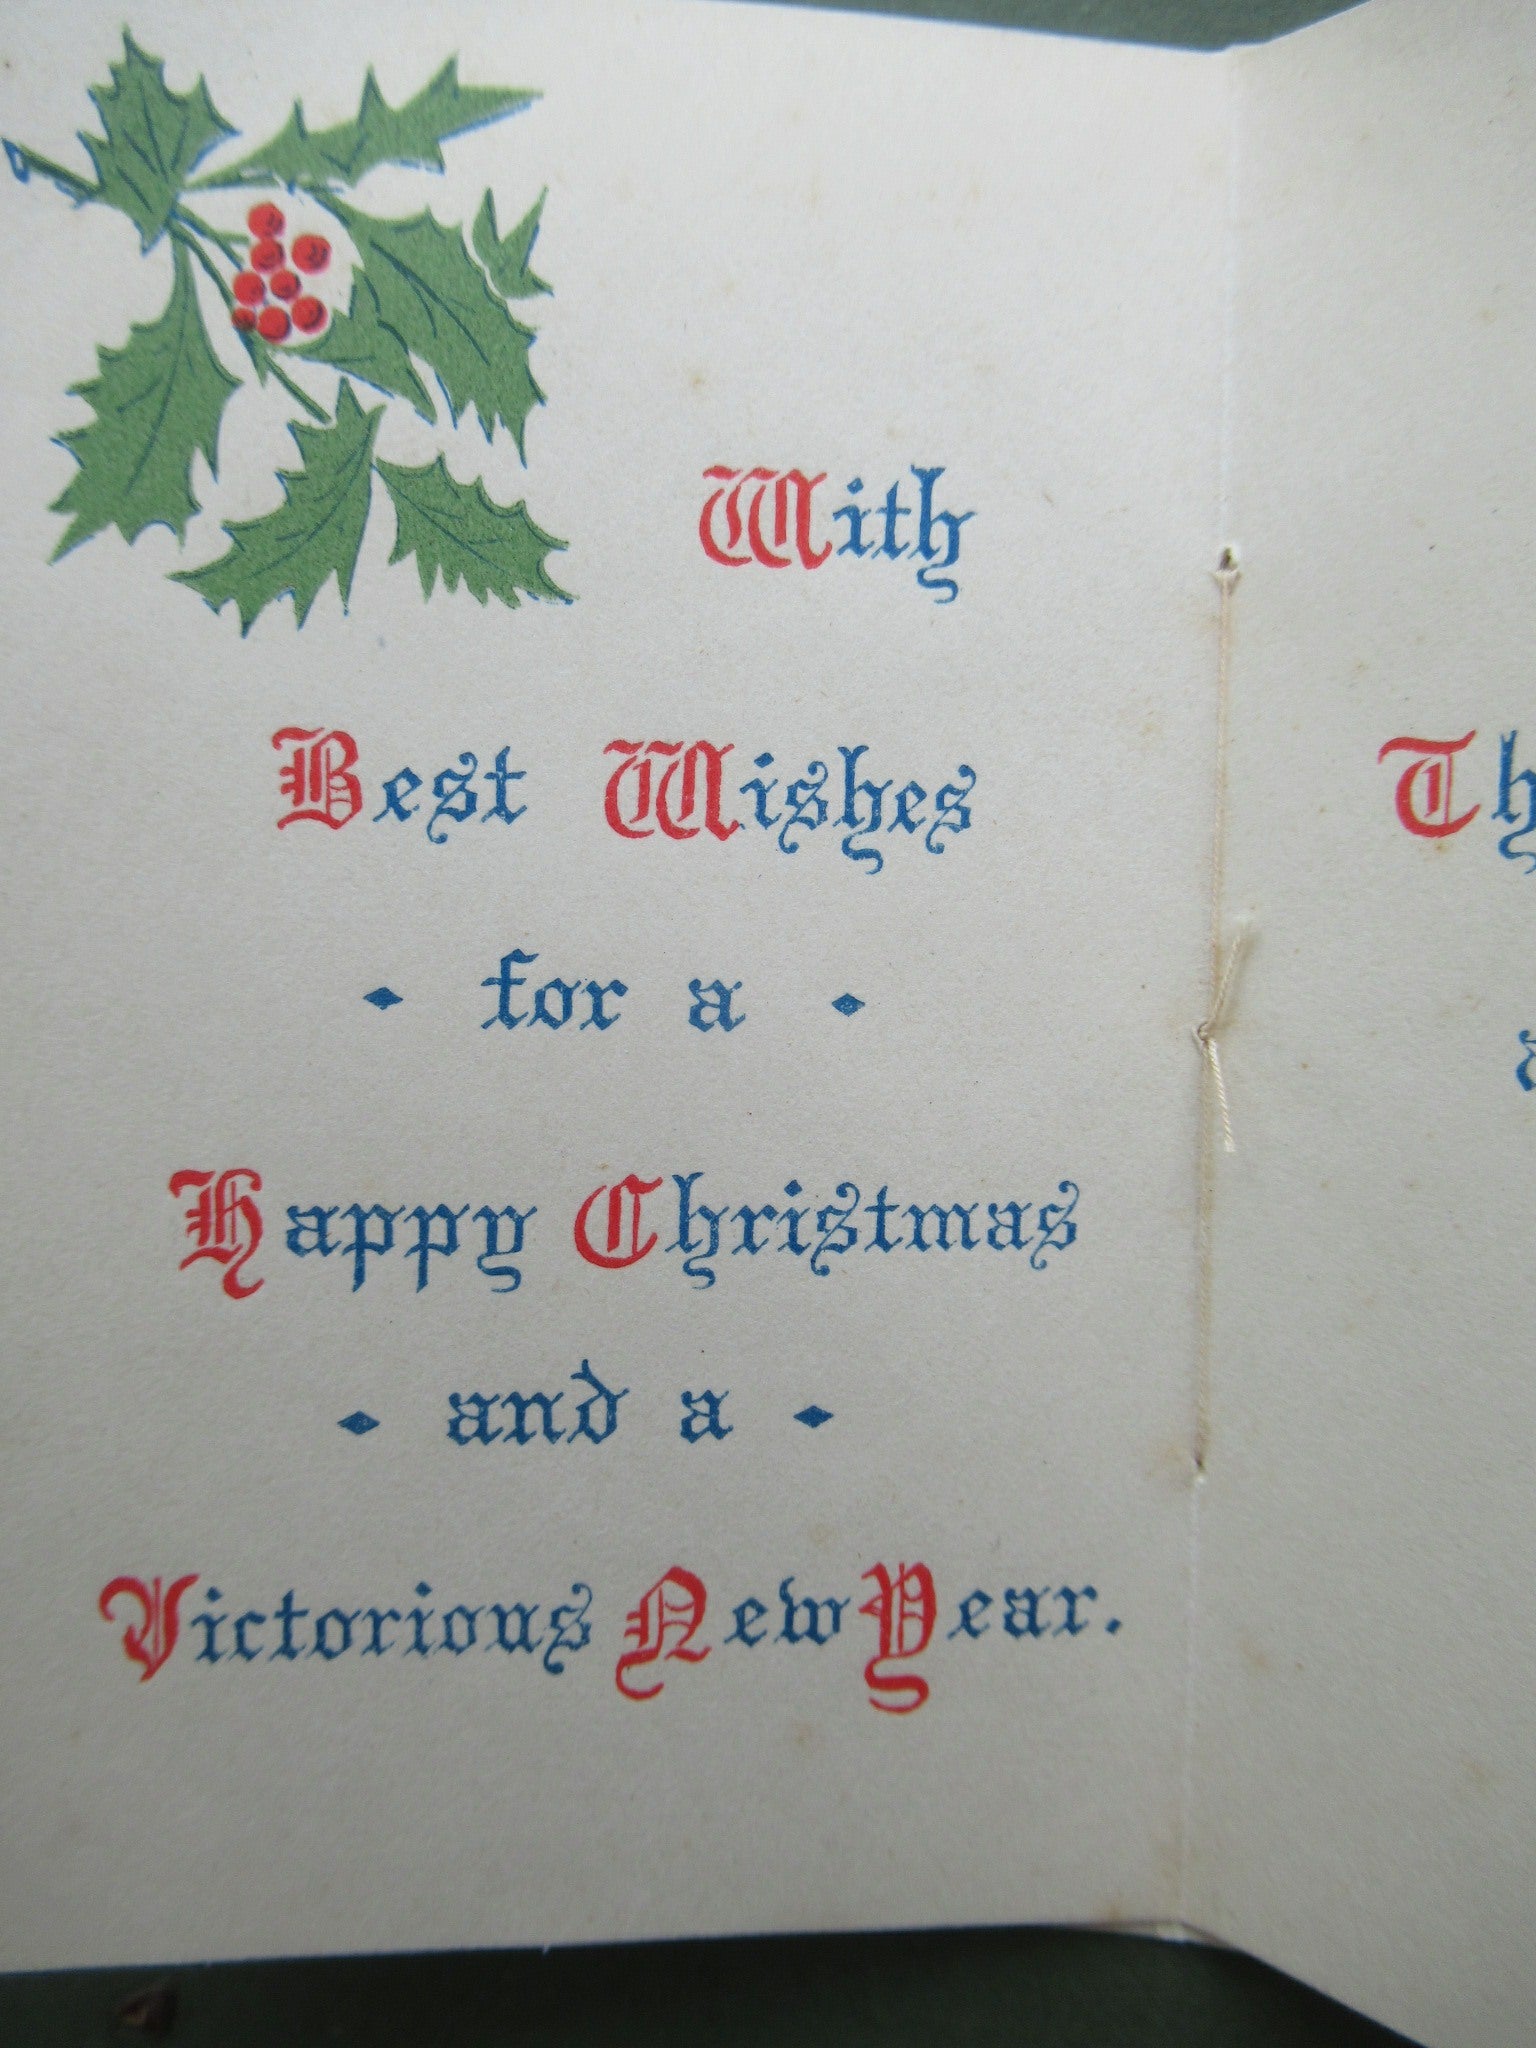 With
Best Wishes
- for a -
Happy Christmas
- and a -
Victorious New Year.